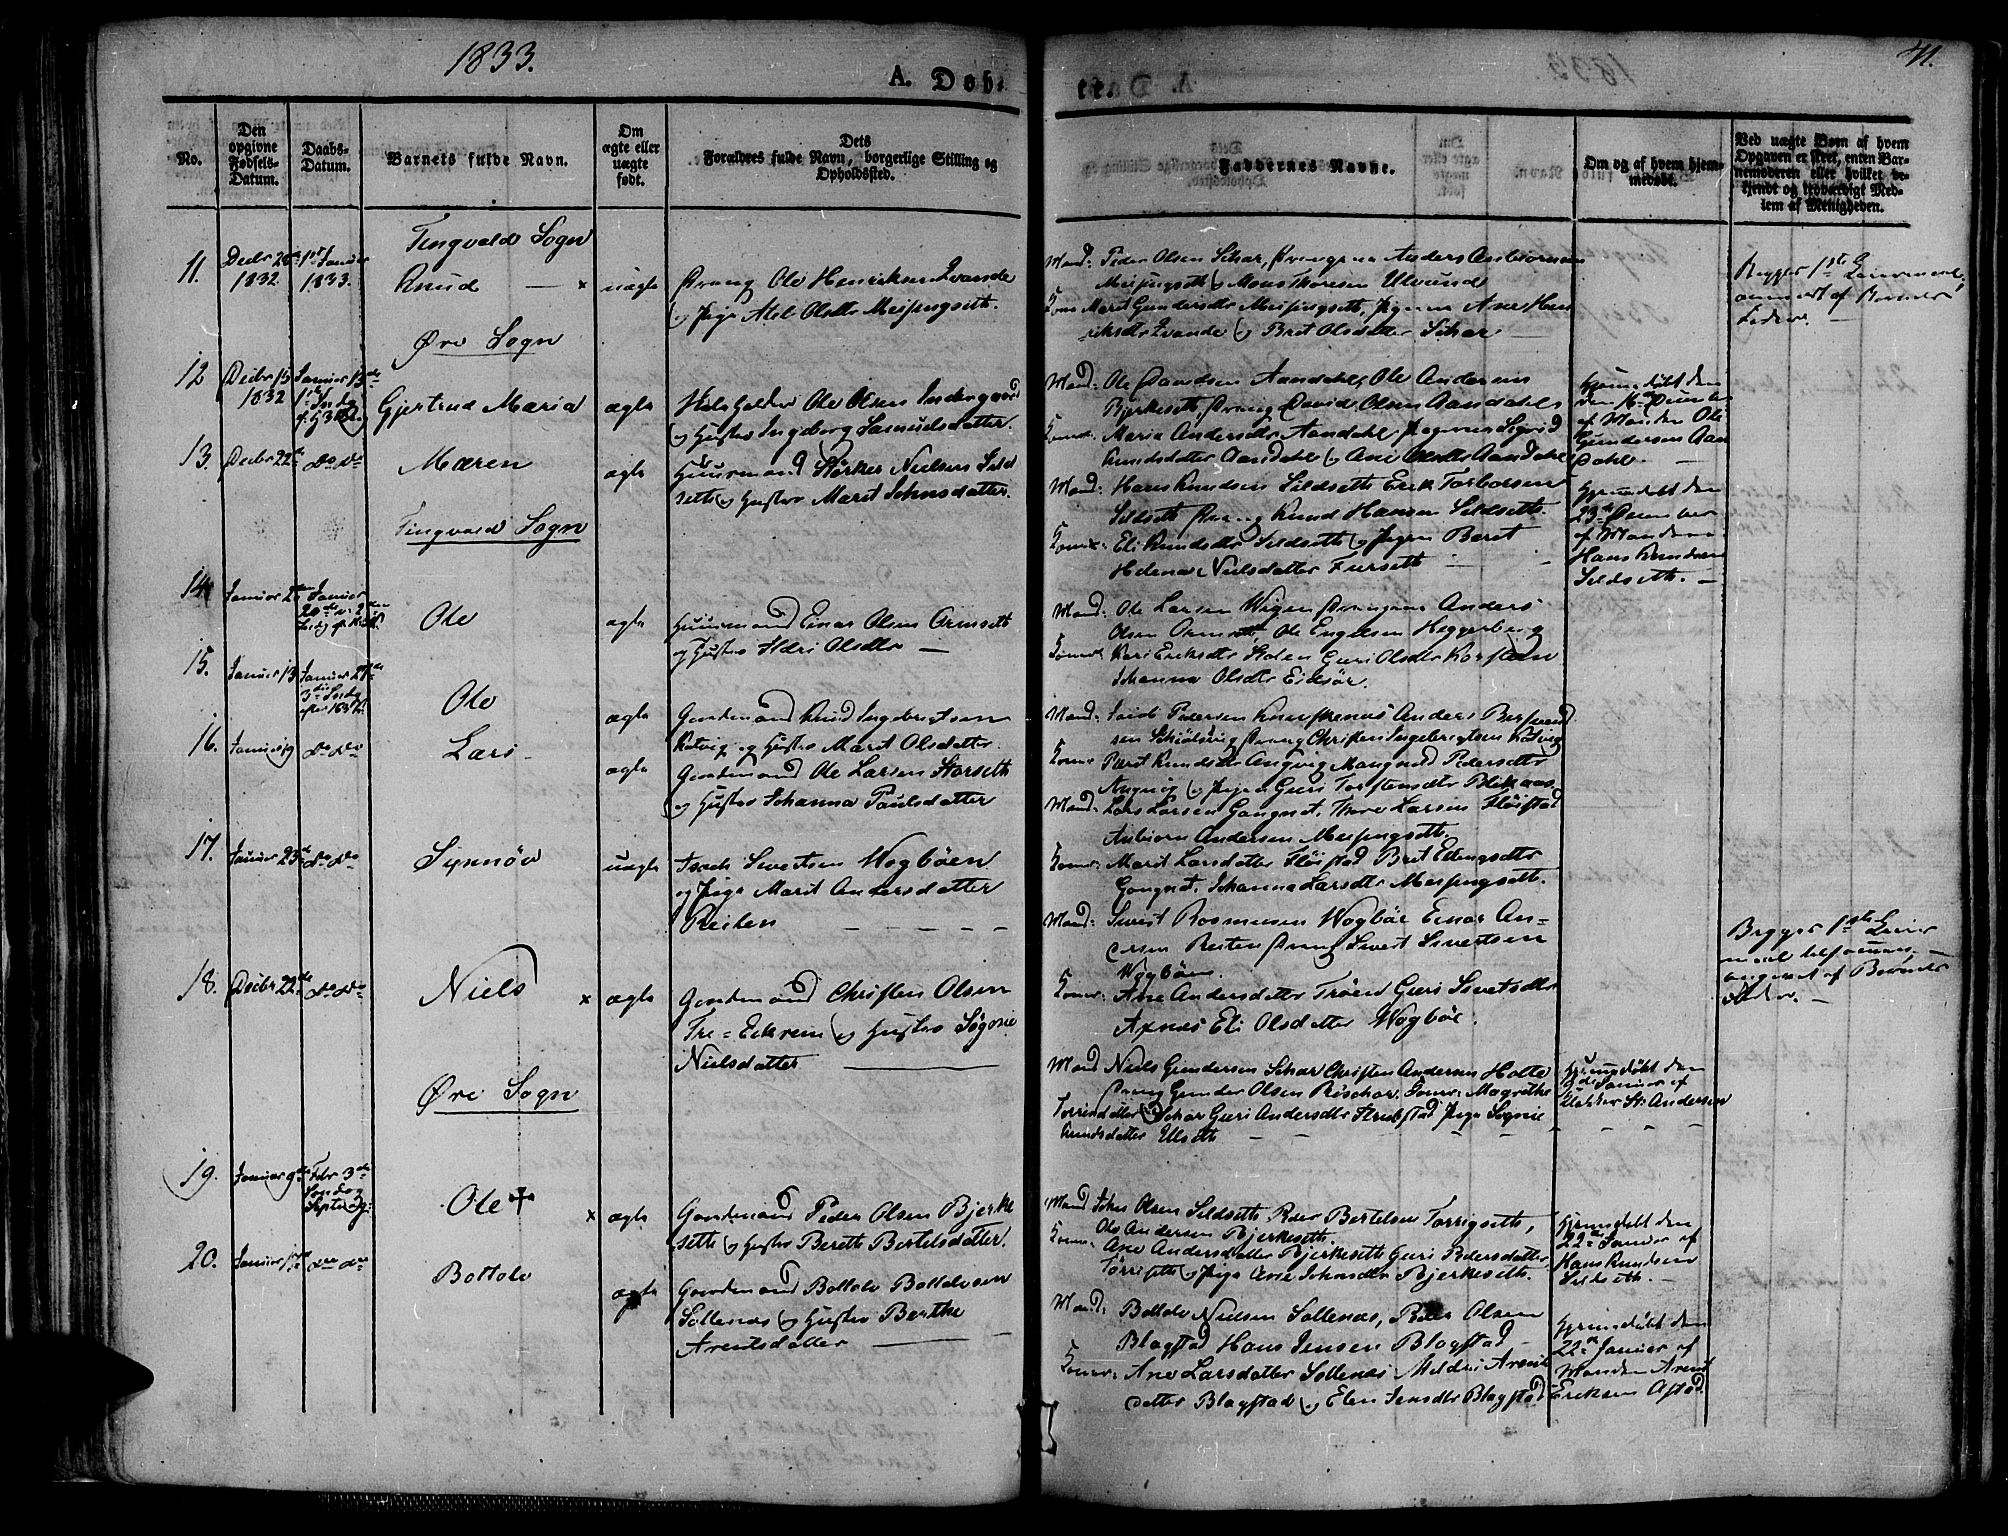 1833.
41.
A. Døb-
te.
No.
Den opgivne Fødsels-Datum.
Daabs-Datum.
Barnets fulde Navn.
Om ægte eller uægte født.
Dets Forældres fulde Navn, borgerlige Stilling og Opholdssted.
Faddernes Navne.
Om og af hvem hjem-medøbt.
Ved uægte Børn af hvem Opgaven er skeet, enten Bar-nemoderen eller hvilket be-kjendt og troværdigt Med-lem af Menigheden.
Tingvold Sogn
11.
Decbr
1832.
1ste Januar
1833.
Knud
×
uægte
Dreng Ole Henriksen Qvande
og Pige Olsdtr Meisingseth.
Mænd: Peder Olsen Schar, Drengene Anders Anbiørnsen
Meisingseth og Mons Thoresen Ulvund
Koner Marit Gundersdtr Meisingseth, Pigerne Ane Hen
riksdtr Qvande og Bret Olsdatter Schar
Begges 1ste Leiermaal
af Barnets
Fader.
Øre Sogn
12
Decbr 15
1832
Januar 13de
1ste Søndag
Gjertrud Maria
ægte
Ole Olsen Indergaard
og Hustro Ingeborg Samuelsdatter.
Mænd: Ole Davidsen Aandahl, Ole Andersen
Bjerkeseth, Dreng David Olsen Aandahl
Koner: Maria Andersdtr Aandahl Pigerne Sigrid
Knudsdatter Aandahl og Ane Olsdtr Aandahl
Hjemmedøbt den
den 16de Decembr
af Manden Ole
Gundersen Aan
dahl.
13.
Decbr 22de
do do
Maren
ægte
Huusmand Størker Nielsen Sild
seth og Hustro Marit Johnsdatter.
Mænd: Hans Knudsen Sildseth Erik Torborsen
Sildseth Dreng Knud Hansen Sildseth
Koner: Eli Knudsdtr Sildseth og Pigen Beret
Helena Nielsdatter Furseth
Hjemmedøbt den
23de December
af Manden
Hans Knudsen
Sildseth.
Tingvold Sogn
14
Januar 2den
Januar
20de
Ole
ægte
Huusmand Einar Olsen Ormseth
og Hustro Ildri Olsdtr
Mænd: Ole Larsen Wigen Drengene Anders
Olsen Ormseth, Ole Engelsen Heggerberg
Koner: Kari Eriksdtr Stolen Guri Olsdtr Korsteen
Johanna Olsdtr Eidsør.
15.
Januar 13
Januar 27de
3die Søndag
Ole
ægte
Gaardmand Knud Ingebrigtsen
Kotvig og Hustro Marit Olsdatter.
Mænd: Jacob Pedersen Anders
sen Dreng Christen Ingebrigtsen Kotvig
Koner Beret Knudsdtr Angvig Mangnild Pedersdtr
Angvig og Pigen Guri Torstensdtr Blikaas
16.
Januar 19
do do
Lars
ægte
Gaardmand Ole Larsen Storseth
og Hustro Johanna Paulsdatter
Mænd: Lars Larsen Gangnet, Thore Larsen Fløistad
Anbiørn Andersen Meisingseth.
Koner: Marit Larsdatter Fløistad Bret Ellingsdtr
Gangnet, Johanna Larsdtr Meisingseth.
17.
Januar 23de
do do
Synnøv
uægte
Isach Sivertsen Wogbøen
og Pige Marit Andersdatter
Reiten
Mænd: Sivert Rasmusen Wogbøe Einar An-
dersen Reiten Dreng Sivert Sivertsen
Wogbøen.
Koner: Ane Andersdatter Trøen Guri Sivertsdtr
Axnes Eli Olsdatter Wogbøe.
Begges 1ste Leier
maal
angivet af Barnets
Fader.
18.
Decbr 22de
do do
Niels
×
ægte
Gaardmand Christen Olsen
Tre-Eekrem og Hustro Sygnie
Nielsdatter
Mænd Niels Gundersen Schar Christen Andersen Holte
Dreng Gunder Olsen Koner: Magrethe
datter Schar Guri Andersdtr Pige Sygnie
Knudsdatter Ellseth
Hjemmedøbt den
Januar af
Klokker St: Andersen
Øre Sogn
19.
Januar 9de
Febr 3de
Søndag
Septuag:
Ole +
×
ægte
Gaardmand Peder Olsen Bjerke
seth og Hustro Bereth Bertelsdatter.
Mænd John Olsen Sildseth, Peder Bertelsen Torrigseth,
Ole Andersen Bjerkeseth.
Koner: Ane Andersdatter Bjerkeseth Guri Pedersdatter
Torrigseth og Pige Ane Johnsdtr Bjerkeseth.
Hjemmedøbt den
22de Januar af
Hans Knudsen
Sildseth.
20.
Januar 17de
do do
Bottolv
ægte
Gaardmand Bottolv Bottolvsen
Sollenæs og Hustro Berthe
Arentsdatter
Mænd: Bottolv Nielsen Sollenæs, Peder Olsen
Blagstad Hans Jensen Blagstad
Koner: Ane Larsdatter Sollenæs Meldri Arents
datter Blagstad og Elen Jensdtr Blagstad
Hjemmedøbt den
22de Januar af
Manden Arent
Eriksen Astad